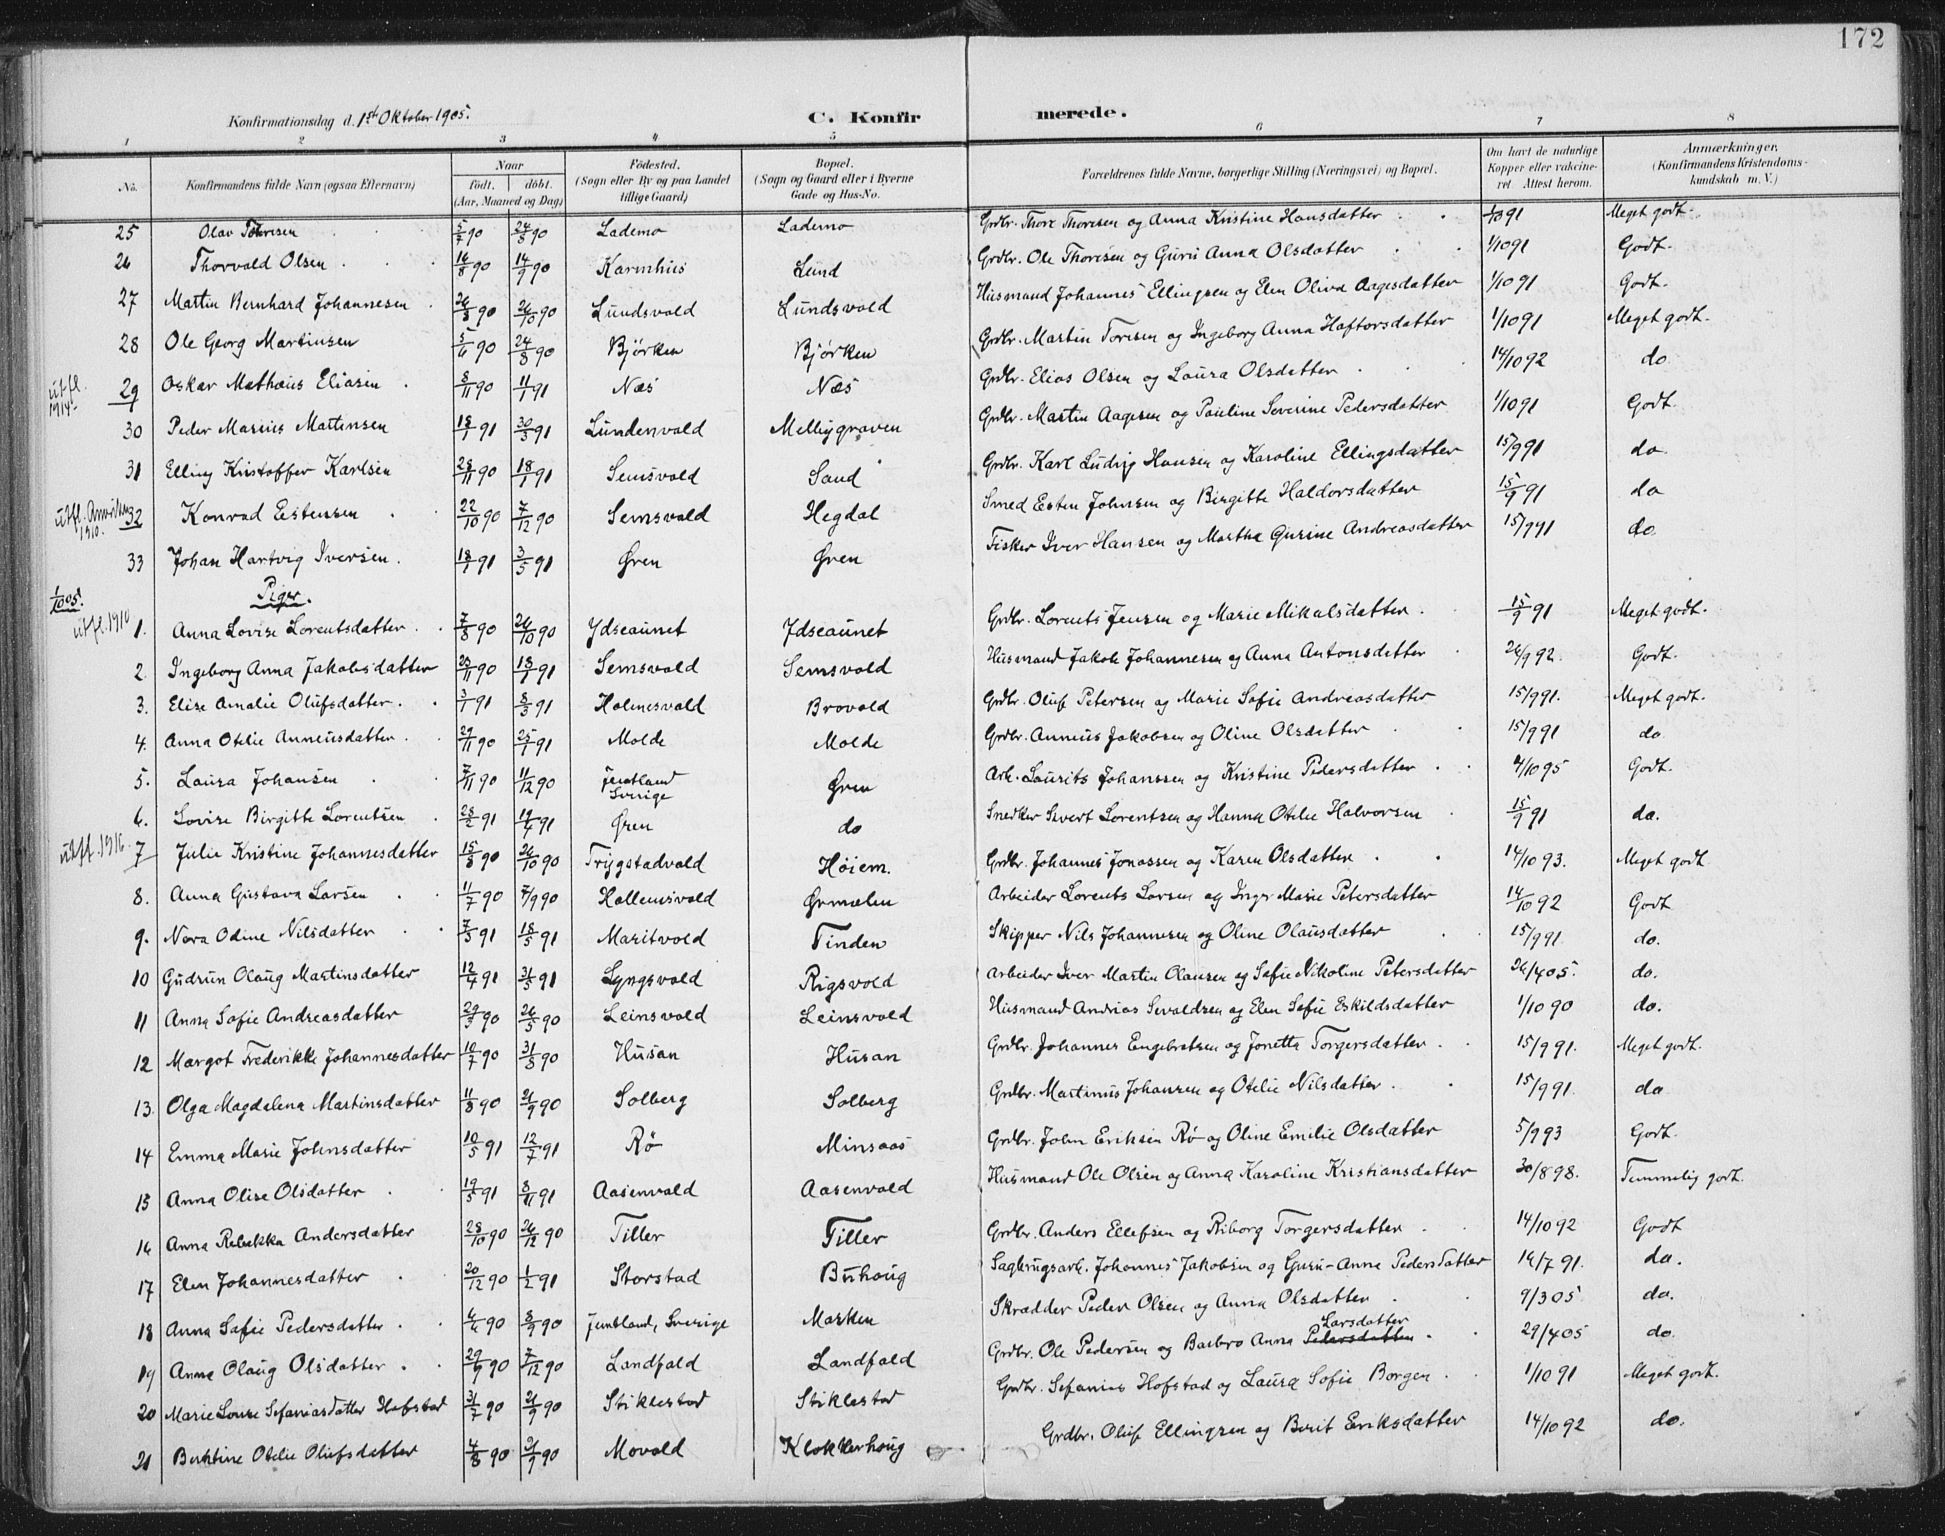 172
Konfirmationsdag d. 1st Oktober 1905. C. Konfirmerede.
1 2 3 4 5 6 7 8
No. Konfirmandens fulde Navn (ogsaa Efternavn) Naar født. døbt. (Aar, Maaned og Dag) Fødested. (Sogn eller By og paa Landet tillige Gaard) Bopæl. (Sogn og Gaard eller i Byerne Gade og Hus-No. Forældrenes fulde Navne, borgerlige Stilling (Næringsvei) og Bopæl. Om havt de naturlige Kopper eller vakcineret Attest herom. Anmærkninger. (Konfirmandens Kristendomskundskab m. V.)
25 Olav Thoresen 5/7 90 24/8 90 Lademo Lademo Grdbr. Thore Thoresen og Anna Kristine Hansdatter 1/10 91 Meget godt.
26 Thorvald Olsen 16/8 90 14/9 90 Karmhus Lund Grdbr. Ole Thoresen og Guru Anna Olsdatter 1/10 91 Godt.
27 Martin Bernhard Johannesen 26/8 90 26/10 90 Lundsvald Lundsvald Husmand Johannes Ellingsen og Elen Oliva Aagesdatter 1/10 91 Godt.
28 Ole Georg Martinsen 5/6 90 24/8 90 Bjørken Bjørken Grdbr. Martin Toresen og Ingeborg Anna Haftorsdatter 1/10 91 Meget godt.
utfl. 1914. 29 Oskar Mathæus Eliasen 8/11 90 11/1 91 Næs Næs Grdbr. Elias Olsen og Laura Olsdatter 14/10 92 do
30 Peder Marius Martinsen 18/1 91 30/3 91 Lundenvald Melbygraven Grdbr. Martin Aagesen og Pauline Severine Pedersdatter 1/10 91 Godt.
31 Elling Kristoffer Karlsen 28/11 90 18/1 91 Semsvald Sand Grdbr. Karl Ludvig Hansen og Karoline Ellingsdatter 15/9 91 do
utfl. Amerika 1910. 32 Konrad Estensen 22/10 90 7/12 90 Semsvald Hegdal Smed Esten Johnsen og Birgitte Haldorsdatter 15/9 91 do
33 Johan Hartvig Iversen. 18/1 91 3/5 91 Øren Øren Fisker Iver Hansen og Martha Gurine Andreasdatter 15/9 91 do
1/10 05. Piger.
utfl. 1910 1. Anna Lovise Lorentsdatter 7/8 90 26/10 90 Ydseaunet Ydseaunet Grdbr. Lorents Jensen og Marie Mikalsdatter. 15/9 91 Meget godt.
2. Ingeborg Anna Jakobsdatter 23/11 90 18/1 91 Semsvald Semsvald Husmand Jakob Johannesen og Anna Antonsdatter 26/9 92. Godt.
3. Elise Amalie Olufsdatter. 3/1 91 8/3 91 Holmesvald Brovald Grdbr. Oluf Petersen og Marie Sofie Andreasdatter 15/9 91. Meget godt.
4. Anna Otelie Anneusdatter 29/11 90 25/1 91 Molde Molde Grdbr. Anneus Jakobsen og Oline Olsdatter 15/9 91 do
5. Laura Johansen 7/11 90 11/12 90 Jemtland Sverige Øren Arb. Laurits Johanssen og Kristine Pedersdatter 4/10 95 Godt.
6. Lovise Birgitte Lorentsen 28/2 91 19/4 91 Øren do Snedker Sivert Lorentsen og Hanna Otelie Halvorsen 15/9 91 do.
utfl. 1916. 7 Julie Kristine Johannesdatter 15/8 90 26/10 90 Trygstadvald Høiem. Grdbr. Johannes Jonassen og Karen Olsdatter 14/10 93. Meget godt
8. Anna Gustava Larsen 11/7 90 7/9 90 Hallemsvald Ørmælen Arbeider Lorents Larsen og Inger Marie Petersdatter 14/10 92 Godt
9. Nora Odine Nilsdatter 7/3 91 18/5 91 Maritvold Tinden Skipper Nils Johannesen og Oline Olausdatter 15/9 91. do.
10 Gudrun Olaug Martinsdatter 12/4 91 31/5 91 Lyngsvald Rigsvold Arbeider Iver Martin Olausen og Sofie Nikoline Petersdatter 26/4 05. do.
11 Anna Sofie Andreasdatter 29/3 90 26/5 90 Leinsvald Leinsvald Husmand Andrias Sevaldsen og Elen Sofie Eskildsdatter 1/10 90 do.
12 Margot Frederikke Johannesdatter 10/7 90 31/8 90 Husan Husan Grdbr. Johannes Engebretsen og Jonetta Torgersdatter 15/9 91. Meget godt.
13. Olga Magdalena Martinsdatter 11/8 90 21/9 90 Solberg Solberg Grdbr. Martinus Johansen og Otelie Nilsdatter. 15/9 91. do
14 Emma Marie Johnsdatter 10/5 91 12/7 91 Rø Minsaas Grdbr. John Eriksen Rø og Oline Emilie Olsdatter 5/9 93 Godt.
15 Anna Olise Olsdatter 19/5 91 8/11 91 Aasenvald Aasenvald Husmand Ole Olsen og Anna Karoline Kristiansdatter 30/8 98. Temmelig godt.
16 Anna Rebekka Andersdatter 28/10 90 26/12 90 Tiller Tiller Grdbr. Anders Ellefsen og Riborg Torgersdatter 14/10 92 Godt
17 Elen Johannesdatter 20/12 90 1/2 91 Storstad Buhoug Sagbrugsarb. Johannes Jakobsen og Guru-Anna Pedersdatter 14/7 91. do.
18 Anna Sofie Pedersdatter 6/6 90 8/9 90 Jemtland, Sverige Marken Skrædder Peder Olsen og Anna Olsdatter 9/3 05 do.
19 Anna Olaug Olsdatter 29/9 90 7/12 90 Landfald Landfald Grdbr. Ole Pedersen og Barbro Anna Pedersdatter Larsdatter 29/4 05 do.
20 Marie Louise Sefaniasdatter Hofstad 31/7 90 21/9 90 Stiklestad Stiklestad Grdbr. Sefanias Hofstad og Laura Sofie Borgen 1/10 91 Meget godt.
21 Berntine Otelie Olufsdatter 4/8 90 21/9 90 Movald Klokkerhoug Grdbr. Oluf Ellingsen og Berit Eriksdatter 14/10 92 do.